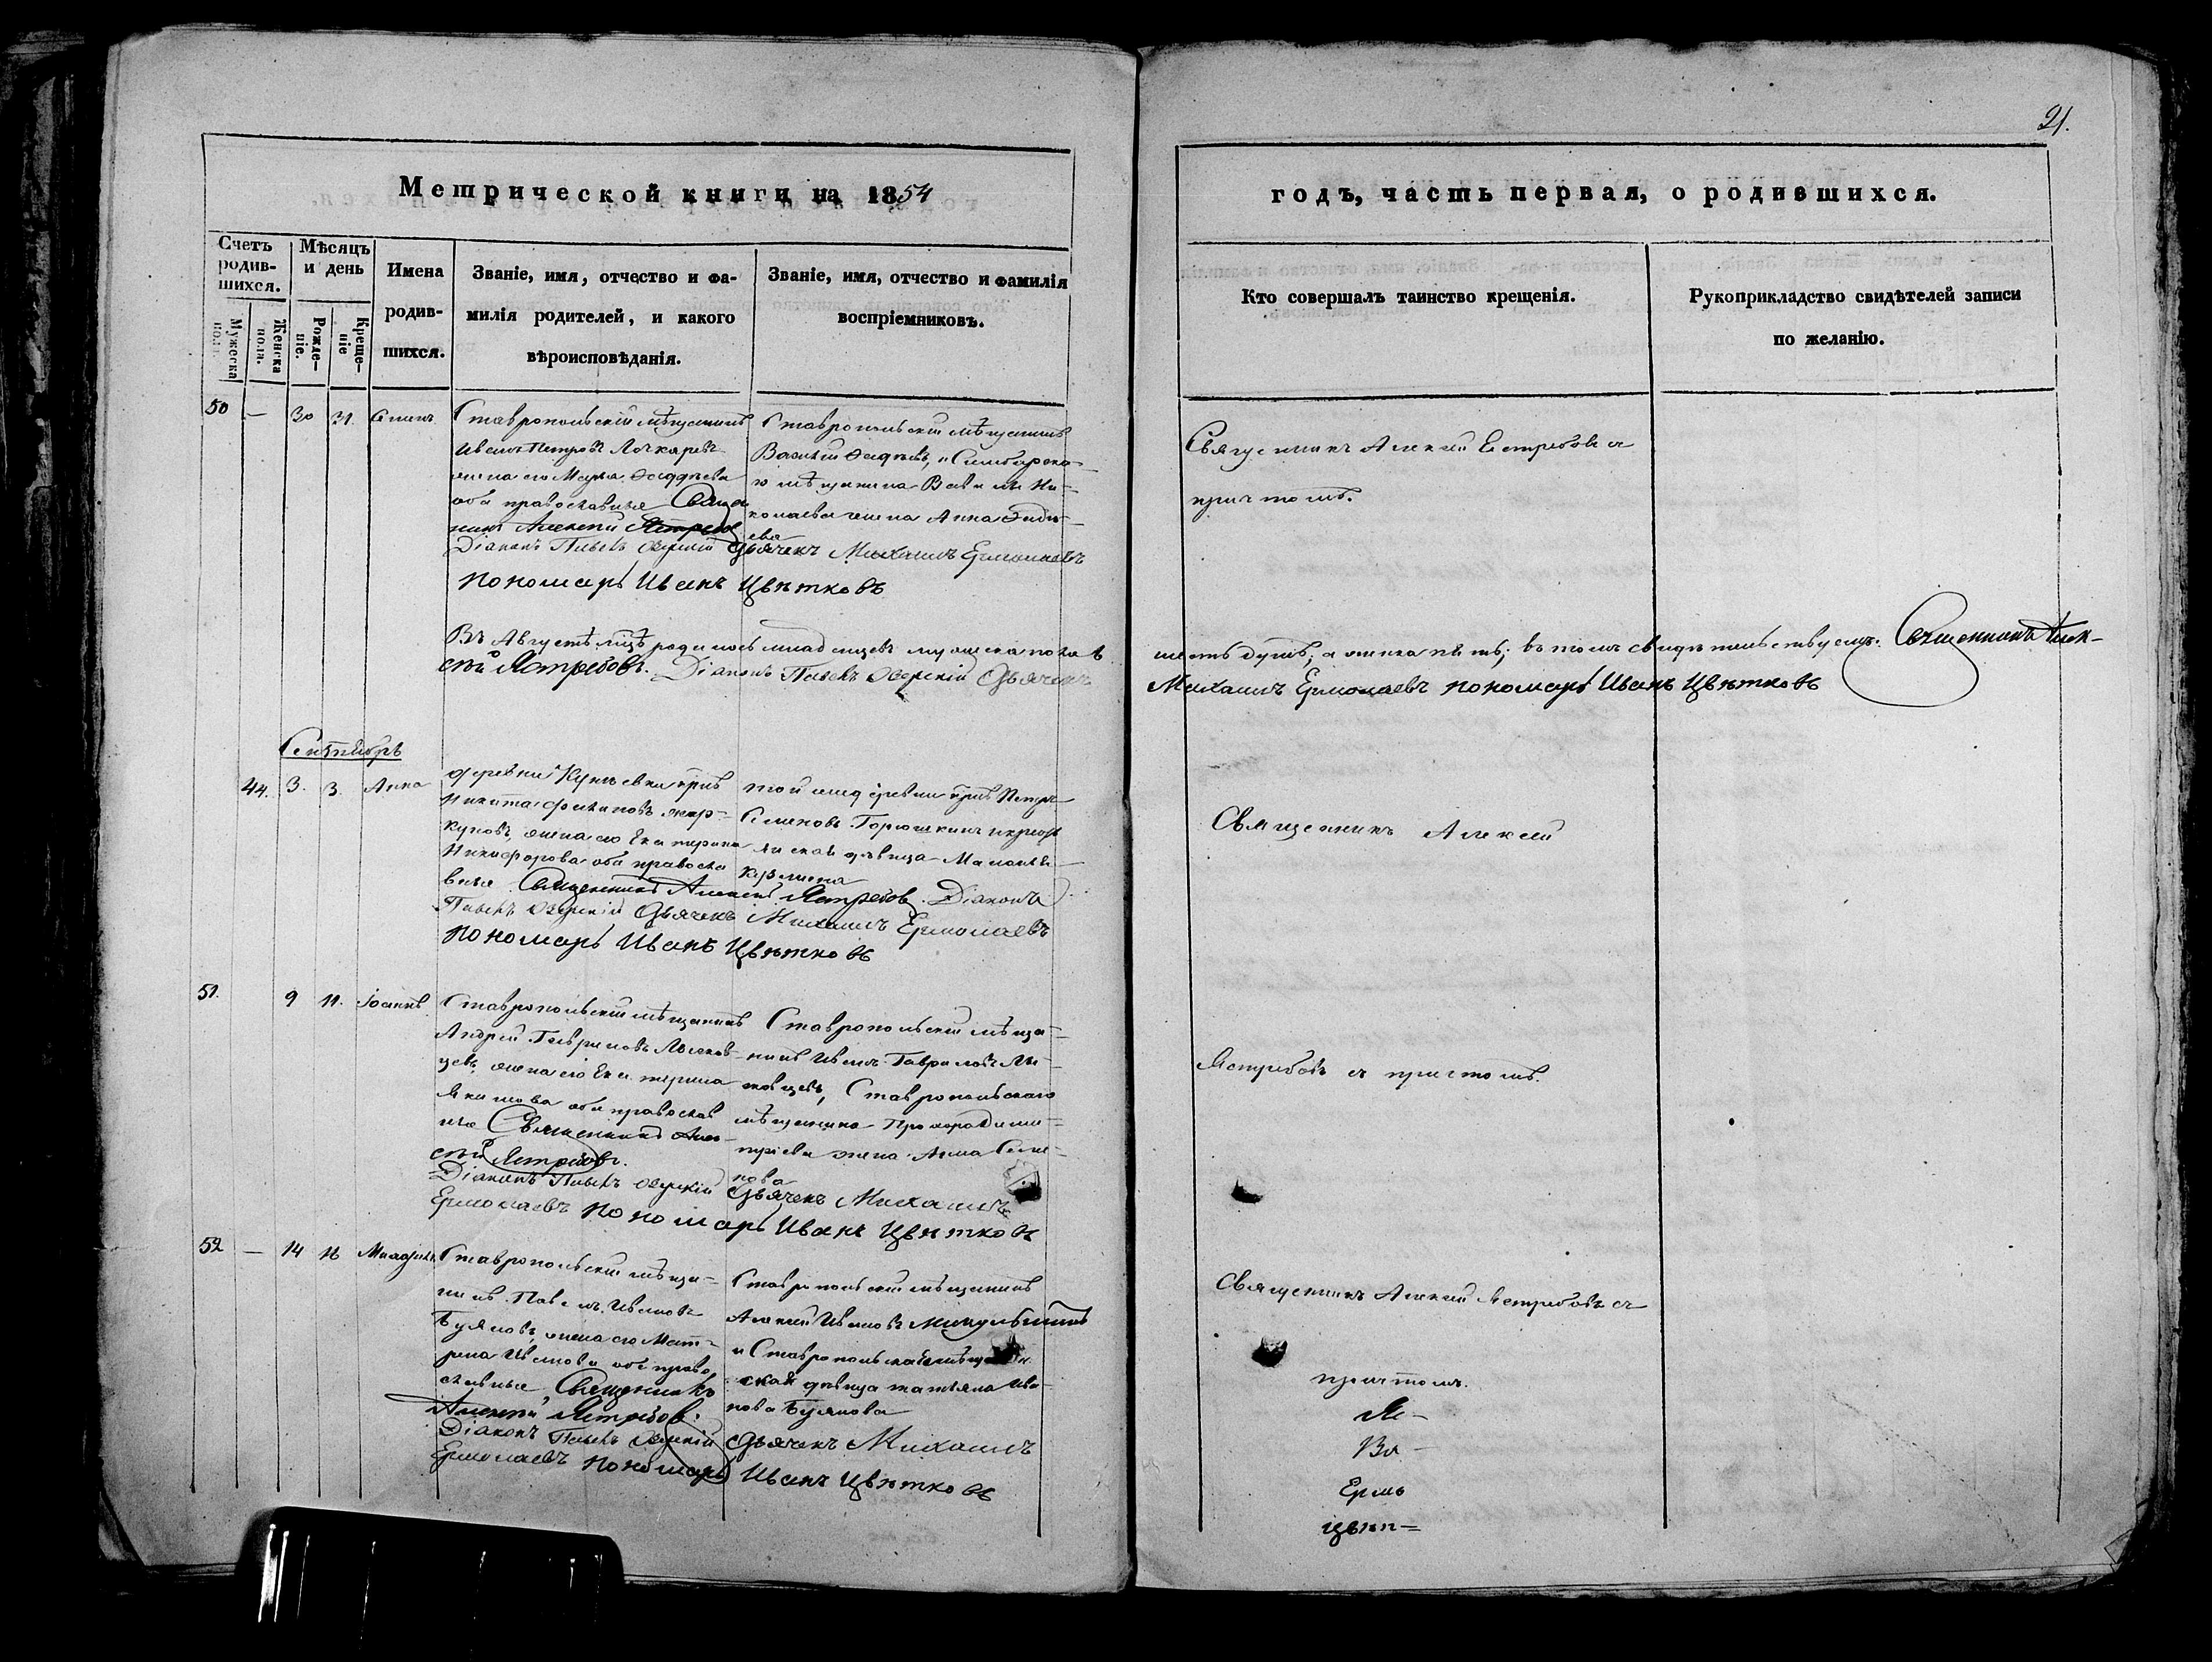 21.
Метрической книги на 1854
годъ, часть первая, о родившихся.
Счетъ родив-
шихся.
Мужеска
пола.
Женска
пола.
Мѣсяцъ
и день
Рожде-
ніе.
Креще-
ніе
Имена
родив-
шихся.
Званіе, имя, отчество и фа-
милія родителей, и какого
вѣроисповѣданія.
Званіе, имя, отчество и фамилія
воспріемниковъ.
Кто совершалъ таинство крещенія.
Рукоприкладство свидѣтелей записи
по желанію.
50 — 30 31.
Ставропольскій мѣщанинъ
Иванъ Петровъ
жена его Марья Фаддѣева
оба православные Свяще
никъ Алексѣй Ястребов
Діаконъ Павелъ Озерскій Дьячекъ Михаилъ Ермолаевъ
пономарь Иванъ Цвѣтковъ
Ставропольскій мѣщанинъ
Василій Фадѣевъ, и Симбирска-
го мѣщанина Вавилы Ни-
колаева жена Анна Фадѣ-
ева
Священникъ Алексѣй Ястребовъ съ
причтомъ.
Въ Августѣ мцѣ родилось младенцевъ мужеска пола
шесть душъ; а женска пять; въ томъ свидѣтельствуемъ. Священникъ Алек-
сѣй Ястребовъ. Діаконъ Павелъ Озерскій Дьячекъ
Михаилъ Ермолаевъ пономарь Иванъ Цвѣтковъ
Сентябрь
44. 3. 3. Анна
деревни Кунѣевки крнъ
Никита Филиповъ
жена его Екатерина
Никифорова оба правосла
вные. Священникъ Алексѣй Ястребов. Діаконъ
Павелъ Озерскій Дьячекъ Михаилъ Ермолаевъ
пономарь Иванъ Цвѣтковъ
той же деревни крнъ Петръ
Семеновъ Горюшкинъ и кресть
янская дѣвица
Кузмина
Священникъ Алексѣй
51. 9 11. Іоаннъ
Ставропольскій мѣщанинъ
Андрей Гавриловъ Лысков-
цевъ, жена его Екатерина
Якимова оба православ
ные Священникъ Алек-
сѣй Ястребовъ.
Діаконъ Павелъ Озерскій Дьячекъ Михаилъ
Ермолаевъ пономарь Иванъ Цвѣтковъ
Ставропольскій мѣща-
нинъ Иванъ Гавриловъ Лы-
сковцевъ, Ставропольскаго
мѣщанина Прохора Дими-
тріева жена Анна Семе-
нова
Ястребовъ съ причтомъ.
52 — 14 16
Ставропольскій мѣща-
нинъ Павелъ Ивановъ
Буяновъ, жена его Мат-
рена Иванова оба право
славные Священникъ
Алексѣй Ястребов.
Діаконъ Павелъ Озерскій Дьячекъ Михаилъ
Ермолаевъ пономарь Иванъ Цвѣтковъ
Ставропольскій мѣщанинъ
Алексѣй Ивановъ Микулынинъ
и Ставропольская мѣщан
ская дѣвица Татьяна Ива-
нова Буянова
Священникъ Алексѣй Ястребовъ съ
причтомъ.
Ермо
Цвѣт=